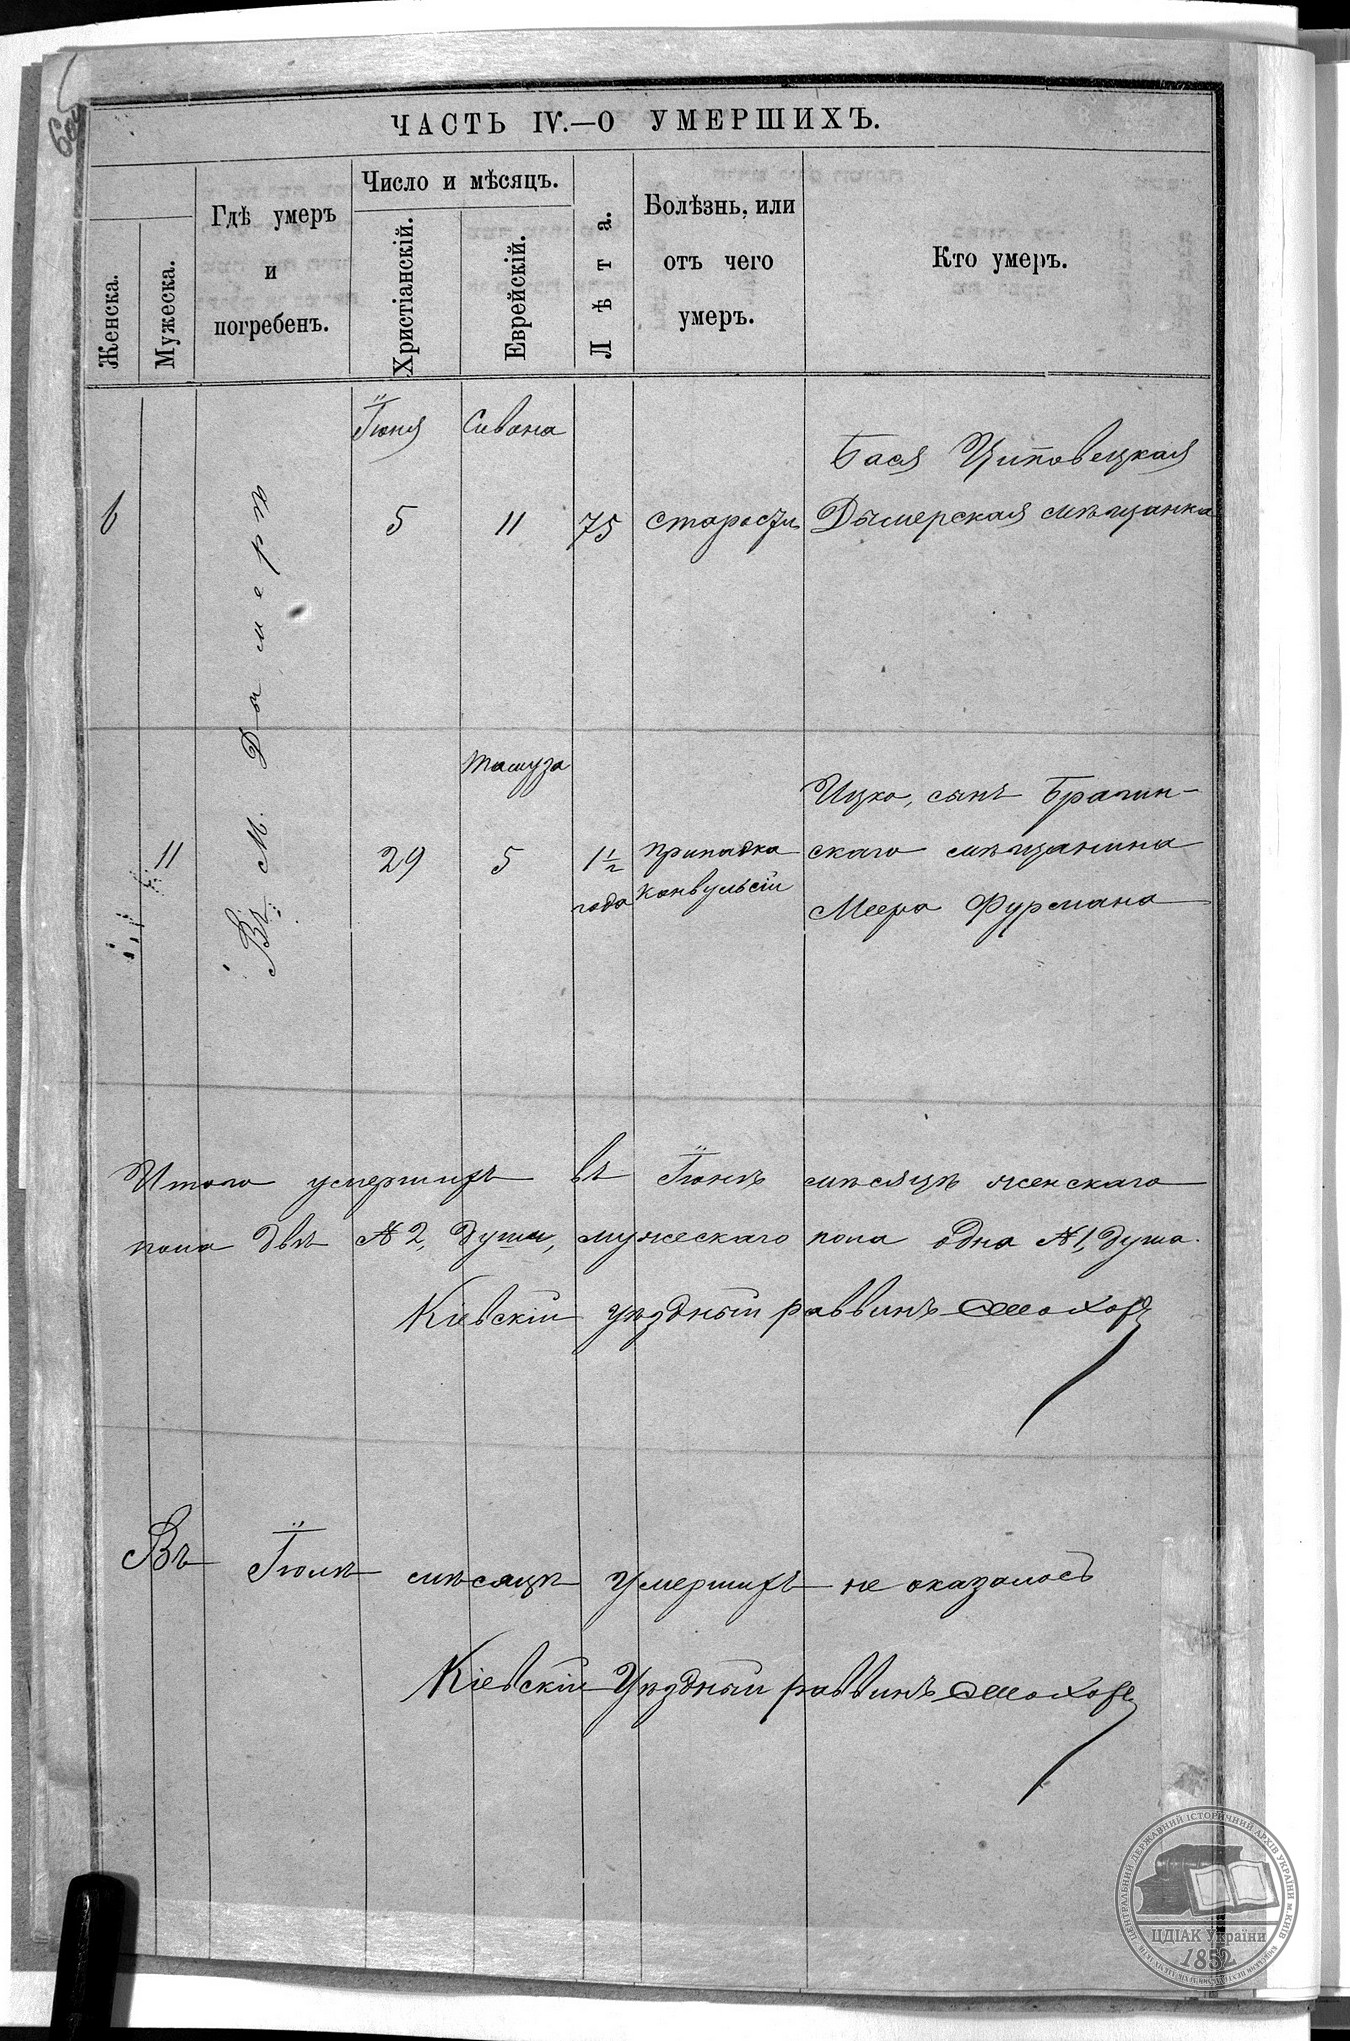 ЧАСТЬ IV.—О УМЕРШИХЪ.
Женска.
Мужеска.
Гдѣ умеръ
и
погребенъ.
Число и мѣсяцъ.
Христіанскій.
Еврейскій.
Лѣта.
Болѣзнь, или
отъ чего
умеръ.
Кто умеръ.
Іюня
Сивана
6
5
11
75
старости
Бася Циповецкая
Дымерская мѣщанка
Въ М. Дымерѣ
Тамуза
11
29
5
1½
года
припадка
конвульсіи
Ицко, сынъ Брагин-
скаго мѣщанина
Меера Фурмана
Итого умершихъ въ Іюнѣ мѣсяцѣ женскаго
пола двѣ № 2, души, мужескаго пола одна № 1, душа.
Кіевскій уѣздный раввинъ
Въ Іюлѣ мѣсяцѣ умершихъ не оказалось
Кіевскій Уѣздный раввинъ
ЦЕНТРАЛЬНИЙ ДЕРЖАВНИЙ ІСТОРИЧНИЙ АРХІВ УКРАЇНИ м.КИЇВ
ЦДІАК України
1852